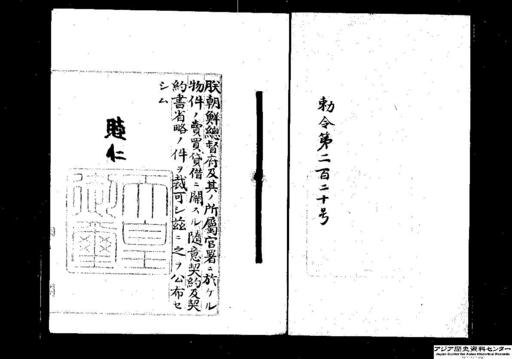 勅令第二百二十号
朕朝鮮總督府及其ノ所屬官署ニ於ケル
物件ノ賣買貸借ニ關スル隨意契約及契
約書省略ノ件ヲ裁可シ茲ニ之ヲ公布セ
シム
睦仁
天皇
御璽
アジア歴史資料センター
Japan Center for Asian Historical Records